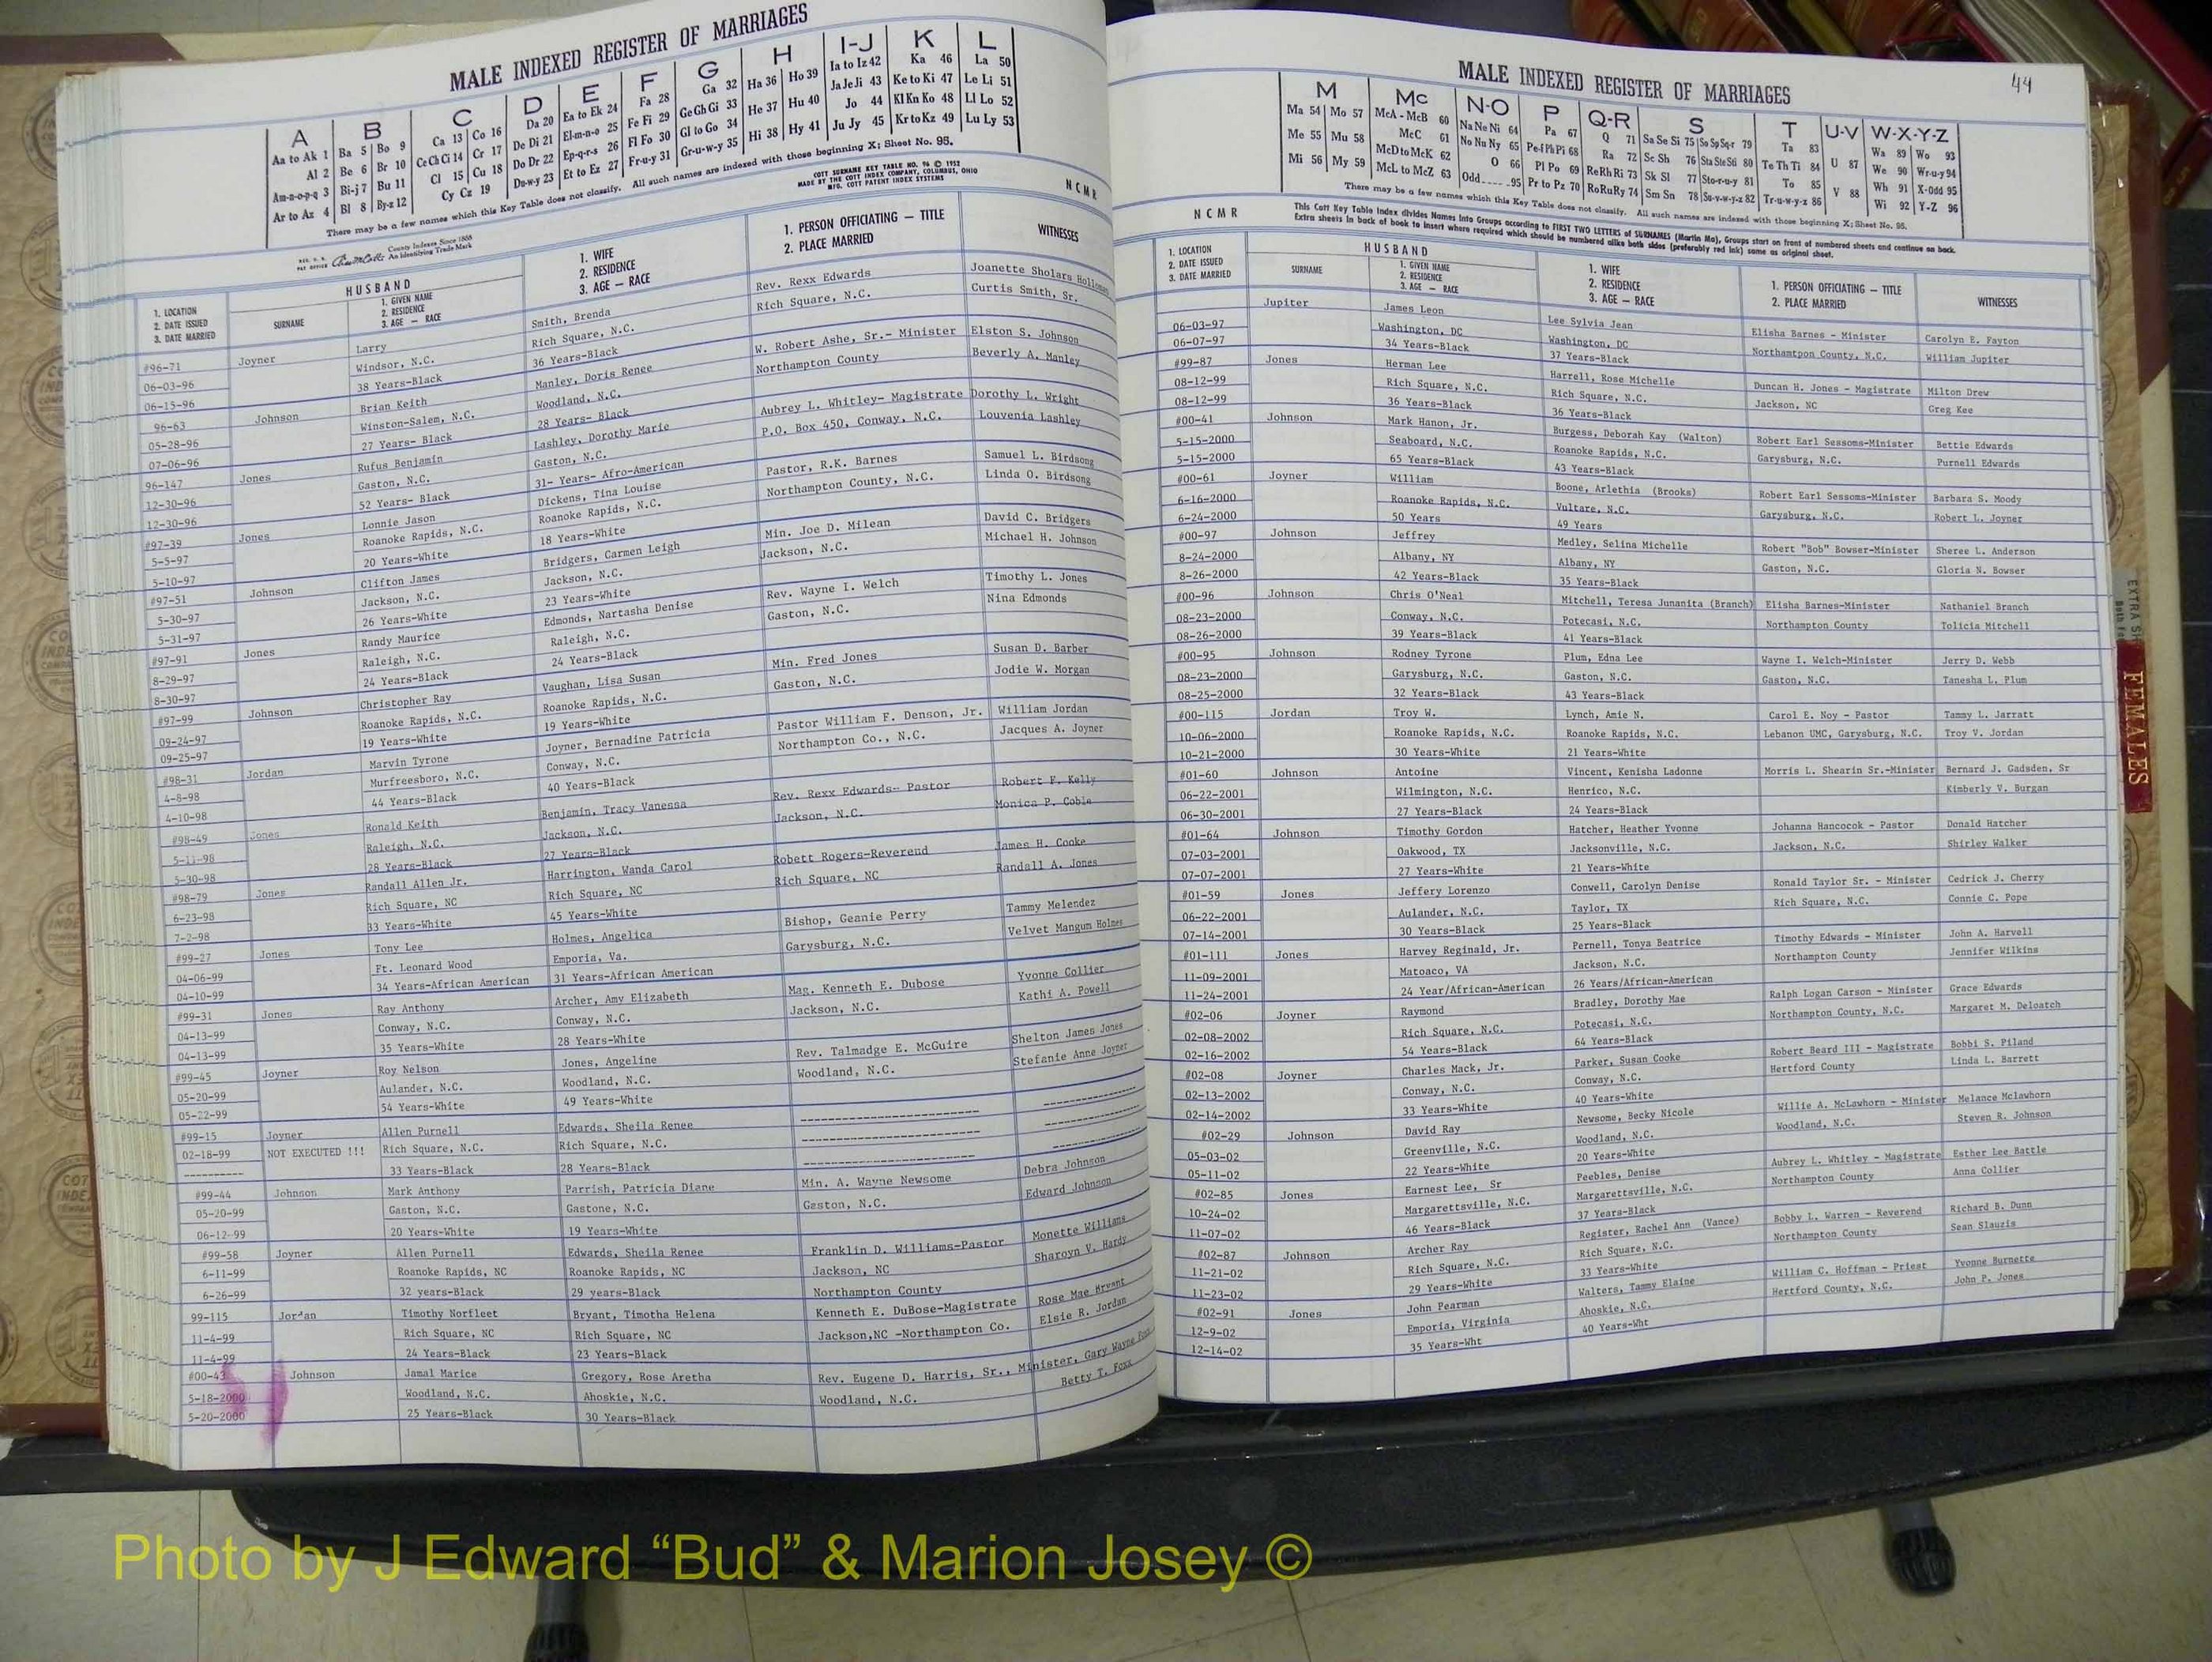 MALE INDEXED REGISTER OF MARRIAGES
A B C D E F G H I-J K L
Aa to Ak 1 Ba 5 Bo 9 Ca 13 Co 16 Da 20 Ea to Ek 24 Fa 28 Ga 32 Ha 36 Ho 39 Ia to Iz 42 Ka 46 La 50
Al 2 Be 6 Br 10 Ce Ch Ci 14 Cr 17 De Di 21 El-m-n-o 25 Fe Fi 29 Ge Gh Gi 33 He 37 Hu 40 Ja Je Ji 43 Ke to Ki 47 Le Li 51
Am-n-o-p-q 3 Bi-j 7 Bu 11 Cl 15 Cu 18 Do Dr 22 Ep-q-r-s 26 Fl Fo 30 Gl to Go 34 Hi 38 Hy 41 Jo 44 Kl Kn Ko 48 Ll Lo 52
Ar to Az 4 Bl 8 By-z 12 Cy Cz 19 Du-w-y 23 Et to Ez 27 Fr-u-y 31 Gr-u-w-y 35 Ju Jy 45 Kr to Kz 49 Lu Ly 53
There may be a few names which this Key Table does not classify. All such names are indexed with those beginning X; Sheet No. 95.
County Indexes Since 1888
An Identifying Trade Mark
COTT SURNAME KEY TABLE NO. 96 © 1952
MADE BY THE COTT INDEX COMPANY, COLUMBUS, OHIO
MFG. COTT PATENT INDEX SYSTEMS
N C M R
1. LOCATION
2. DATE ISSUED
3. DATE MARRIED
HUSBAND
SURNAME
1. GIVEN NAME
2. RESIDENCE
3. AGE — RACE
1. WIFE
2. RESIDENCE
3. AGE — RACE
1. PERSON OFFICIATING — TITLE
2. PLACE MARRIED
WITNESSES
#96-71 Joyner Larry Smith, Brenda Rev. Rexx Edwards Joanette Sholars
06-03-96 Windsor, N.C. Rich Square, N.C. Rich Square, N.C. Curtis Smith, Sr.
06-15-96 38 Years-Black 36 Years-Black
96-63 Johnson Brian Keith Manley, Doris Renee W. Robert Ashe, Sr.- Minister Elston S. Johnson
05-28-96 Winston-Salem, N.C. Woodland, N.C. Northampton County Beverly A. Manley
07-06-96 27 Years- Black 28 Years- Black
96-147 Jones Rufus Benjamin Lashley, Dorothy Marie Aubrey L. Whitley- Magistrate Dorothy L. Wright
12-30-96 Gaston, N.C. Gaston, N.C. P.O. Box 450, Conway, N.C. Louvenia Lashley
12-30-96 52 Years- Black 31- Years- Afro-American
#97-39 Jones Lonnie Jason Dickens, Tina Louise Pastor, R.K. Barnes Samuel L. Birdsong
5-5-97 Roanoke Rapids, N.C. Roanoke Rapids, N.C. Northampton County, N.C. Linda O. Birdsong
5-10-97 20 Years-White 18 Years-White
#97-51 Johnson Clifton James Bridgers, Carmen Leigh Min. Joe D. Milean David C. Bridgers
5-30-97 Jackson, N.C. Jackson, N.C. Jackson, N.C. Michael H. Johnson
5-31-97 26 Years-White 23 Years-White
#97-91 Jones Randy Maurice Edmonds, Nartasha Denise Rev. Wayne I. Welch Timothy L. Jones
8-29-97 Raleigh, N.C. Raleigh, N.C. Gaston, N.C. Nina Edmonds
8-30-97 24 Years-Black 24 Years-Black
#97-99 Johnson Christopher Ray Vaughan, Lisa Susan Min. Fred Jones Susan D. Barber
09-24-97 Roanoke Rapids, N.C. Roanoke Rapids, N.C. Gaston, N.C. Jodie W. Morgan
09-25-97 19 Years-White 19 Years-White
#98-31 Jordan Marvin Tyrone Joyner, Bernadine Patricia Pastor William F. Denson, Jr. William Jordan
4-8-98 Murfreesboro, N.C. Conway, N.C. Northampton Co., N.C. Jacques A. Joyner
4-10-98 44 Years-Black 40 Years-Black
#98-49 Jones Ronald Keith Benjamin, Tracy Vanessa Rev. Rexx Edwards- Pastor Robert F. Kelly
5-11-98 Raleigh, N.C. Jackson, N.C. Jackson, N.C. Monica P. Coble
5-30-98 28 Years-Black 27 Years-Black
#98-79 Jones Randall Allen Jr. Harrington, Wanda Carol Robett Rogers-Reverend James H. Cooke
6-23-98 Rich Square, NC Rich Square, NC Rich Square, NC Randall A. Jones
7-2-98 33 Years-White 45 Years-White
#99-27 Jones Tony Lee Holmes, Angelica Bishop, Geanie Perry Tammy Melendez
04-06-99 Ft. Leonard Wood Emporia, Va. Garysburg, N.C. Velvet Mangum Holmes
04-10-99 34 Years-African American 31 Years-African American
#99-31 Jones Ray Anthony Archer, Amy Elizabeth Mag. Kenneth E. Dubose Yvonne Collier
04-13-99 Conway, N.C. Conway, N.C. Jackson, N.C. Kathi A. Powell
04-13-99 35 Years-White 28 Years-White
#99-45 Joyner Roy Nelson Jones, Angeline Rev. Talmadge E. McGuire Shelton James Jones
05-20-99 Aulander, N.C. Woodland, N.C. Woodland, N.C. Stefanie Anne Joyner
05-22-99 54 Years-White 49 Years-White
#99-15 Joyner Allen Purnell Edwards, Sheila Renee
02-18-99 NOT EXECUTED !!! Rich Square, N.C. Rich Square, N.C.
---------- 33 Years-Black 28 Years-Black
#99-44 Johnson Mark Anthony Parrish, Patricia Diane Min. A. Wayne Newsome Debra Johnson
05-20-99 Gaston, N.C. Gastone, N.C. Gaston, N.C. Edward Johnson
06-12-99 20 Years-White 19 Years-White
#99-58 Joyner Allen Purnell Edwards, Sheila Renee Franklin D. Williams-Pastor Monette Williams
6-11-99 Roanoke Rapids, NC Roanoke Rapids, NC Jackson, NC Sharoyn V. Hardy
6-26-99 32 years-Black 29 years-Black Northampton County
99-115 Jordan Timothy Norfleet Bryant, Timotha Helena Kenneth E. DuBose-Magistrate Rose Mae Bryant
11-4-99 Rich Square, NC Rich Square, NC Jackson,NC -Northampton Co. Elsie R. Jordan
11-4-99 24 Years-Black 23 Years-Black
#00-43 Johnson Jamal Marice Gregory, Rose Aretha Rev. Eugene D. Harris, Sr., Minister, Gary Wayne
5-18-2000 Woodland, N.C. Ahoskie, N.C. Woodland, N.C. Betty T. Foxx
5-20-2000 25 Years-Black 30 Years-Black
MALE INDEXED REGISTER OF MARRIAGES
44
M Mc N-O P Q-R S T U-V W-X-Y-Z
Ma 54 Mo 57 McA - McB 60 Na Ne Ni 64 Pa 67 Q 71 Sa Se Si 75 So Sp Sq-r 79 Ta 83 U 87 Wa 89 Wo 93
Me 55 Mu 58 McC 61 No Nu Ny 65 Pe-f Ph Pi 68 Ra 72 Sc Sh 76 Sta Ste Sti 80 Te Th Ti 84 V 88 We 90 Wr-u-y 94
Mi 56 My 59 McD to McK 62 O 66 Pl Po 69 Re Rh Ri 73 Sk Sl 77 Sto-r-u-y 81 To 85 Wh 91 X-Odd 95
McL to McZ 63 Odd 95 Pr to Pz 70 Ro Ru Ry 74 Sm Sn 78 Su-v-w-y-z 82 Tr-u-w-y-z 86 Wi 92 Y-Z 96
There may be a few names which this Key Table does not classify. All such names are indexed with those beginning X; Sheet No. 95.
N C M R
This Cott Key Table Index divides Names into Groups according to FIRST TWO LETTERS of SURNAMES (Martin Ma). Groups start on front of numbered sheets and continue on back.
Extra sheets in back of book to insert where required which should be numbered alike both sides (preferably red ink) same as original sheet.
1. LOCATION
2. DATE ISSUED
3. DATE MARRIED
HUSBAND
SURNAME
1. GIVEN NAME
2. RESIDENCE
3. AGE — RACE
1. WIFE
2. RESIDENCE
3. AGE — RACE
1. PERSON OFFICIATING — TITLE
2. PLACE MARRIED
WITNESSES
Jupiter James Leon Lee Sylvia Jean Elisha Barnes - Minister Carolyn E. Fayton
06-03-97 Washington, DC Washington, DC Northamtpon County, N.C. William Jupiter
06-07-97 34 Years-Black 37 Years-Black
#99-87 Jones Herman Lee Harrell, Rose Michelle Duncan H. Jones - Magistrate Milton Drew
08-12-99 Rich Square, N.C. Rich Square, N.C. Jackson, NC Greg Kee
08-12-99 36 Years-Black 36 Years-Black
#00-41 Johnson Mark Hanon, Jr. Burgess, Deborah Kay (Walton) Robert Earl Sessoms-Minister Bettie Edwards
5-15-2000 Seaboard, N.C. Roanoke Rapids, N.C. Garysburg, N.C. Purnell Edwards
5-15-2000 65 Years-Black 43 Years-Black
#00-61 Joyner William Boone, Arlethia (Brooks) Robert Earl Sessoms-Minister Barbara S. Moody
6-16-2000 Roanoke Rapids, N.C. Vultare, N.C. Garysburg, N.C. Robert L. Joyner
6-24-2000 50 Years 49 Years
#00-97 Johnson Jeffrey Medley, Selina Michelle Robert "Bob" Bowser-Minister Sheree L. Anderson
8-24-2000 Albany, NY Albany, NY Gaston, N.C. Gloria N. Bowser
8-26-2000 42 Years-Black 35 Years-Black
#00-96 Johnson Chris O'Neal Mitchell, Teresa Junanita (Branch) Elisha Barnes-Minister Nathaniel Branch
08-23-2000 Conway, N.C. Potecasi, N.C. Northampton County Tolicia Mitchell
08-26-2000 39 Years-Black 41 Years-Black
#00-95 Johnson Rodney Tyrone Plum, Edna Lee Wayne I. Welch-Minister Jerry D. Webb
08-23-2000 Garysburg, N.C. Gaston, N.C. Gaston, N.C. Tanesha L. Plum
08-25-2000 32 Years-Black 43 Years-Black
#00-115 Jordan Troy W. Lynch, Amie N. Carol E. Noy - Pastor Tammy L. Jarratt
10-06-2000 Roanoke Rapids, N.C. Roanoke Rapids, N.C. Lebanon UMC, Garysburg, N.C. Troy V. Jordan
10-21-2000 30 Years-White 21 Years-White
#01-60 Johnson Antoine Vincent, Kenisha Ladonne Morris L. Shearin Sr.-Minister Bernard J. Gadsden, Sr
06-22-2001 Wilmington, N.C. Henrico, N.C. Kimberly V. Burgan
06-30-2001 27 Years-Black 24 Years-Black
#01-64 Johnson Timothy Gordon Hatcher, Heather Yvonne Johanna Hancocok - Pastor Donald Hatcher
07-03-2001 Oakwood, TX Jacksonville, N.C. Jackson, N.C. Shirley Walker
07-07-2001 27 Years-White 21 Years-White
#01-59 Jones Jeffery Lorenzo Conwell, Carolyn Denise Ronald Taylor Sr. - Minister Cedrick J. Cherry
06-22-2001 Aulander, N.C. Taylor, TX Rich Square, N.C. Connie C. Pope
07-14-2001 30 Years-Black 25 Years-Black
#01-111 Jones Harvey Reginald, Jr. Pernell, Tonya Beatrice Timothy Edwards - Minister John A. Harvell
11-09-2001 Matoaco, VA Jackson, N.C. Northampton County Jennifer Wilkins
11-24-2001 24 Year/African-American 26 Years/African-American
#02-06 Joyner Raymond Bradley, Dorothy Mae Ralph Logan Carson - Minister Grace Edwards
02-08-2002 Rich Square, N.C. Potecasi, N.C. Northampton County, N.C. Margaret M. Deloatch
02-16-2002 54 Years-Black 64 Years-Black
#02-08 Joyner Charles Mack, Jr. Parker, Susan Cooke Robert Beard III - Magistrate Bobbi S. Piland
02-13-2002 Conway, N.C. Conway, N.C. Hertford County Linda L. Barrett
02-14-2002 33 Years-White 40 Years-White
#02-29 Johnson David Ray Newsome, Becky Nicole Willie A. McLawhorn - Minister Melance Mclawhorn
05-03-02 Greenville, N.C. Woodland, N.C. Woodland, N.C. Steven R. Johnson
05-11-02 22 Years-White 20 Years-White
#02-85 Jones Earnest Lee, Sr Peebles, Denise Aubrey L. Whitley - Magistrate Esther Lee Battle
10-24-02 Margarettsville, N.C. Margarettsville, N.C. Northampton County Anna Collier
11-07-02 46 Years-Black 37 Years-Black
#02-87 Johnson Archer Ray Register, Rachel Ann (Vance) Bobby L. Warren - Reverend Richard B. Dunn
11-21-02 Rich Square, N.C. Rich Square, N.C. Northampton County Sean Slauzis
11-23-02 29 Years-White 33 Years-White
#02-91 Jones John Pearman Walters, Tammy Elaine William C. Hoffman - Priest Yvonne Burnette
12-9-02 Emporia, Virginia Ahoskie, N.C. Hertford County, N.C. John P. Jones
12-14-02 35 Years-Wht 40 Years-Wht
FEMALES
Photo by J Edward “Bud” & Marion Josey ©